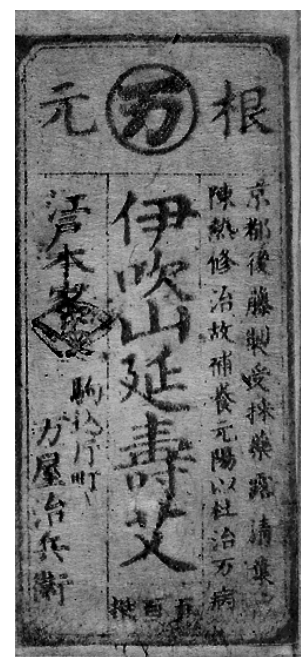 根 万 元
京都後藤製受採藥露清葉
陳熱修治故補養元陽以杜治万病
伊吹山延壽艾
江戸本家
駒込片町
万屋治兵衛